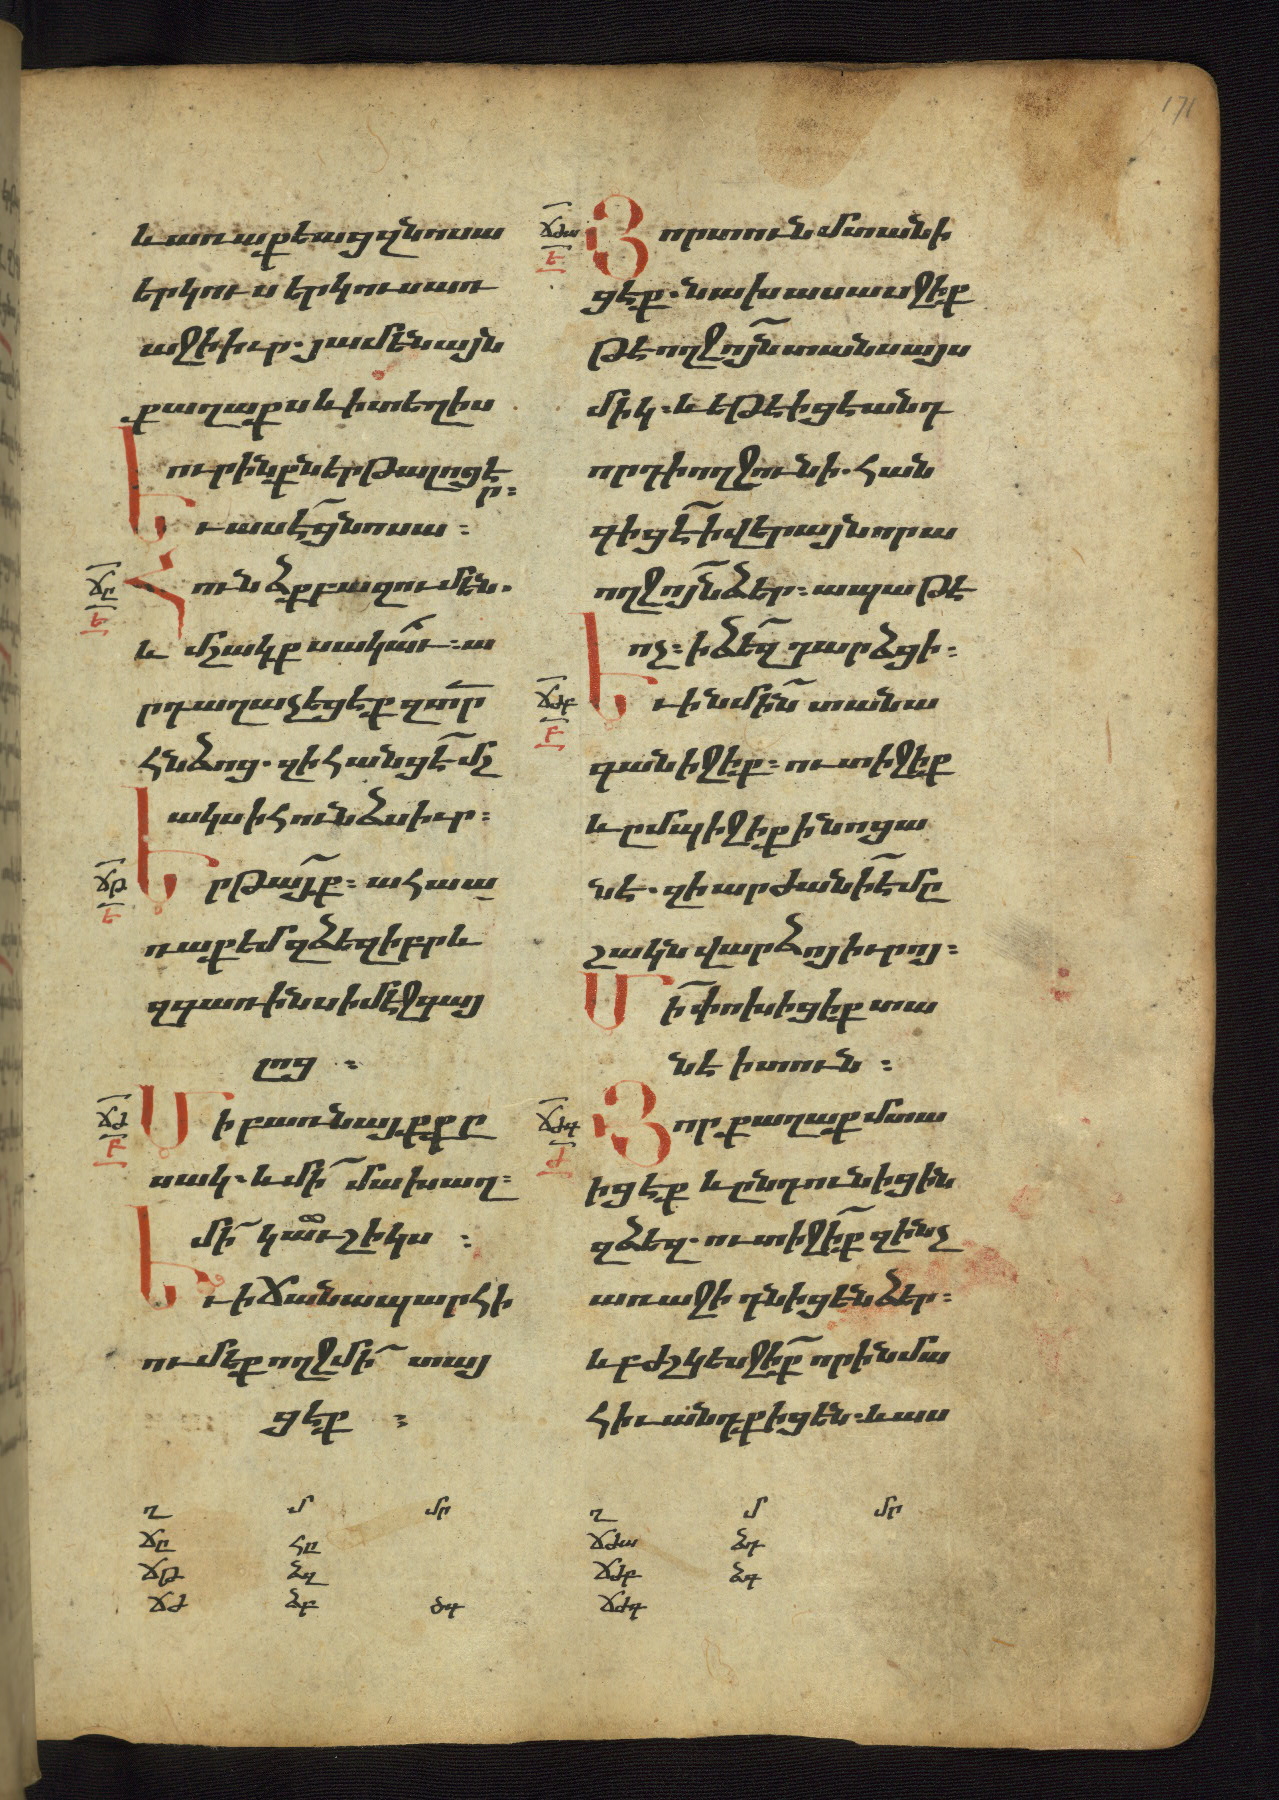 171
և առաքեաց զնոսա
երկուս երկուս առ
աջի իւր. յամենայն
քաղաքս և ի տեղիս
ուր ինքն երթալոց է
ր։
Եւ ասէ ց̅նոսա։
ՃԸ
Ե
Հունձք բազում են.
և մշակք սակաւ̅։ ա
րդ աղաչեցեք զտ̅ր
հնձոց. զի հանցէ̅ մշ
ակս ի հունձս իւր։
ՃԹ
Ե
Երթայ̅ք։ ահա ա
ռաքեմ զձեզ իբրև
զգառինս ի մէջ գայ
լոց։
ՃԺ
Բ
Մի բառնայքք ը
սակ. և մի̅ մախաղ։
մի̅ կաւ̅շիկս։
Եւ ի ճանապարհի
ումեք ողջ մի̅ տայ
ցէք։
ՃԺԱ
Ե
Յոր տուն մտանի
ցէք. նախ ասասջիք
թէ ողջոյ̅ն տանս այս
միկ։ և եթէ իցէ անդ
որդի ողջունի. հան
գիցէ̅ ի վերայ նորա
ողջոյ̅ն ձեր։ ապա թէ
ոչ։ ի ձե̅զ դարձցի։
ՃԺԲ
Բ
Եւ ի նմի̅ն տանա
գանիջիք։ ուտիջիք
և ըմպիջիք ի նոցա
նէ. զի արժանի է̅ մը
շակն վարձոյ իւրոյ։
Մի̅ փոխիցիք տա
նէ ի տուն։
ՃԺԳ
Ժ
Յոր քաղաք մտա
իցէք և ընդունիցին
զձեզ. ուտիջի̅ք զինչ
առաջի դնիցեն ձեր։
և բժշկեսջի̅ք որ ի նմա
հիւանդք իցեն։ և աս
Ղ Մ ՄՐ
ՃԸ ՀԸ
ՃԹ ՁԶ
ՃԺ ՁԲ ԾԳ
Ղ Մ ՄՐ
ՃԺԱ ՁԴ
ՃԺԲ ՁԳ
ՃԺԳ